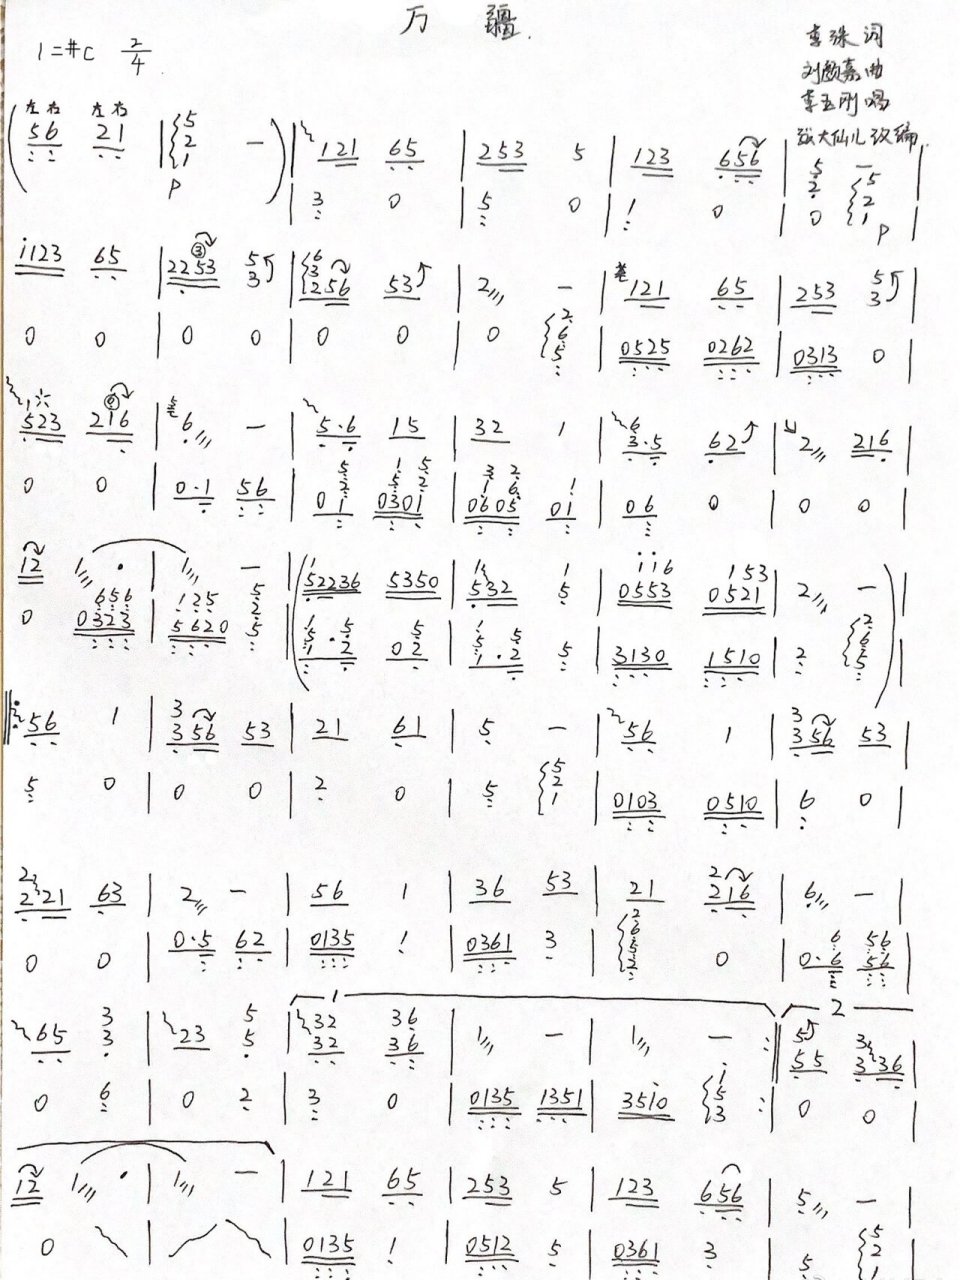 万 疆
1=#C 2/4
李殊 词
刘颜嘉 曲
李玉刚 唱
张大仙儿 改编
左右 左右
( 56 21 | 5 2 1 — ) | 121 65 | 253 5 | 123 656 | 5 2 — |
P 3 0 | 5 0 | 1 0 | 0 5 2 1 P |
i123 65 | 2253 3 5 3 | 6 3 256 53 | 2 — | 121 65 | 253 5 3 |
0 0 | 0 0 | 0 0 | 0 2 6 5 | 0525 0262 | 0313 0 |
523 216 | 6 — | 5·6 15 | 32 1 | 6 3·5 62 | 2 216 |
0 0 | 0·1 56 | 0 1 0301 | 0605 01 | 06 0 | 0 0 |
12 1 · | 1 — | ( 52236 5350 | 1 532 1 5 | i i 6 0553 153 0521 | 2 — ) |
0 656 0323 | 125 5620 5 2 5 | 1 5 1 · 5 2 5 02 | 1 5 1 · 5 2 5 | 3130 1510 | 2 2 6 5 |
56 1 | 3 356 53 | 21 61 | 5 — | 56 1 | 3 356 53 |
5 0 | 0 0 | 2 0 | 5 5 2 1 | 0103 0510 | 6 0 |
2 221 63 | 2 — | 56 1 | 36 53 | 21 2 216 | 6 — |
0 0 | 0·5 62 | 0135 1 | 0361 3 | 2 6 5 2 0 | 0·6 6 56 56 |
1 2
65 3 3 | 23 5 5 | 32 32 36 36 | 1 — | 1 — :‖ 5 55 3 336 |
0 6 | 0 2 | 3 0 | 0135 1351 | 3510 1 5 3 : 0 0 |
12 1 · | 1 — | 121 65 | 253 5 | 123 656 | 5 — |
0 | | 0135 1 | 0512 5 | 0361 3 | 5 5 2 1 |